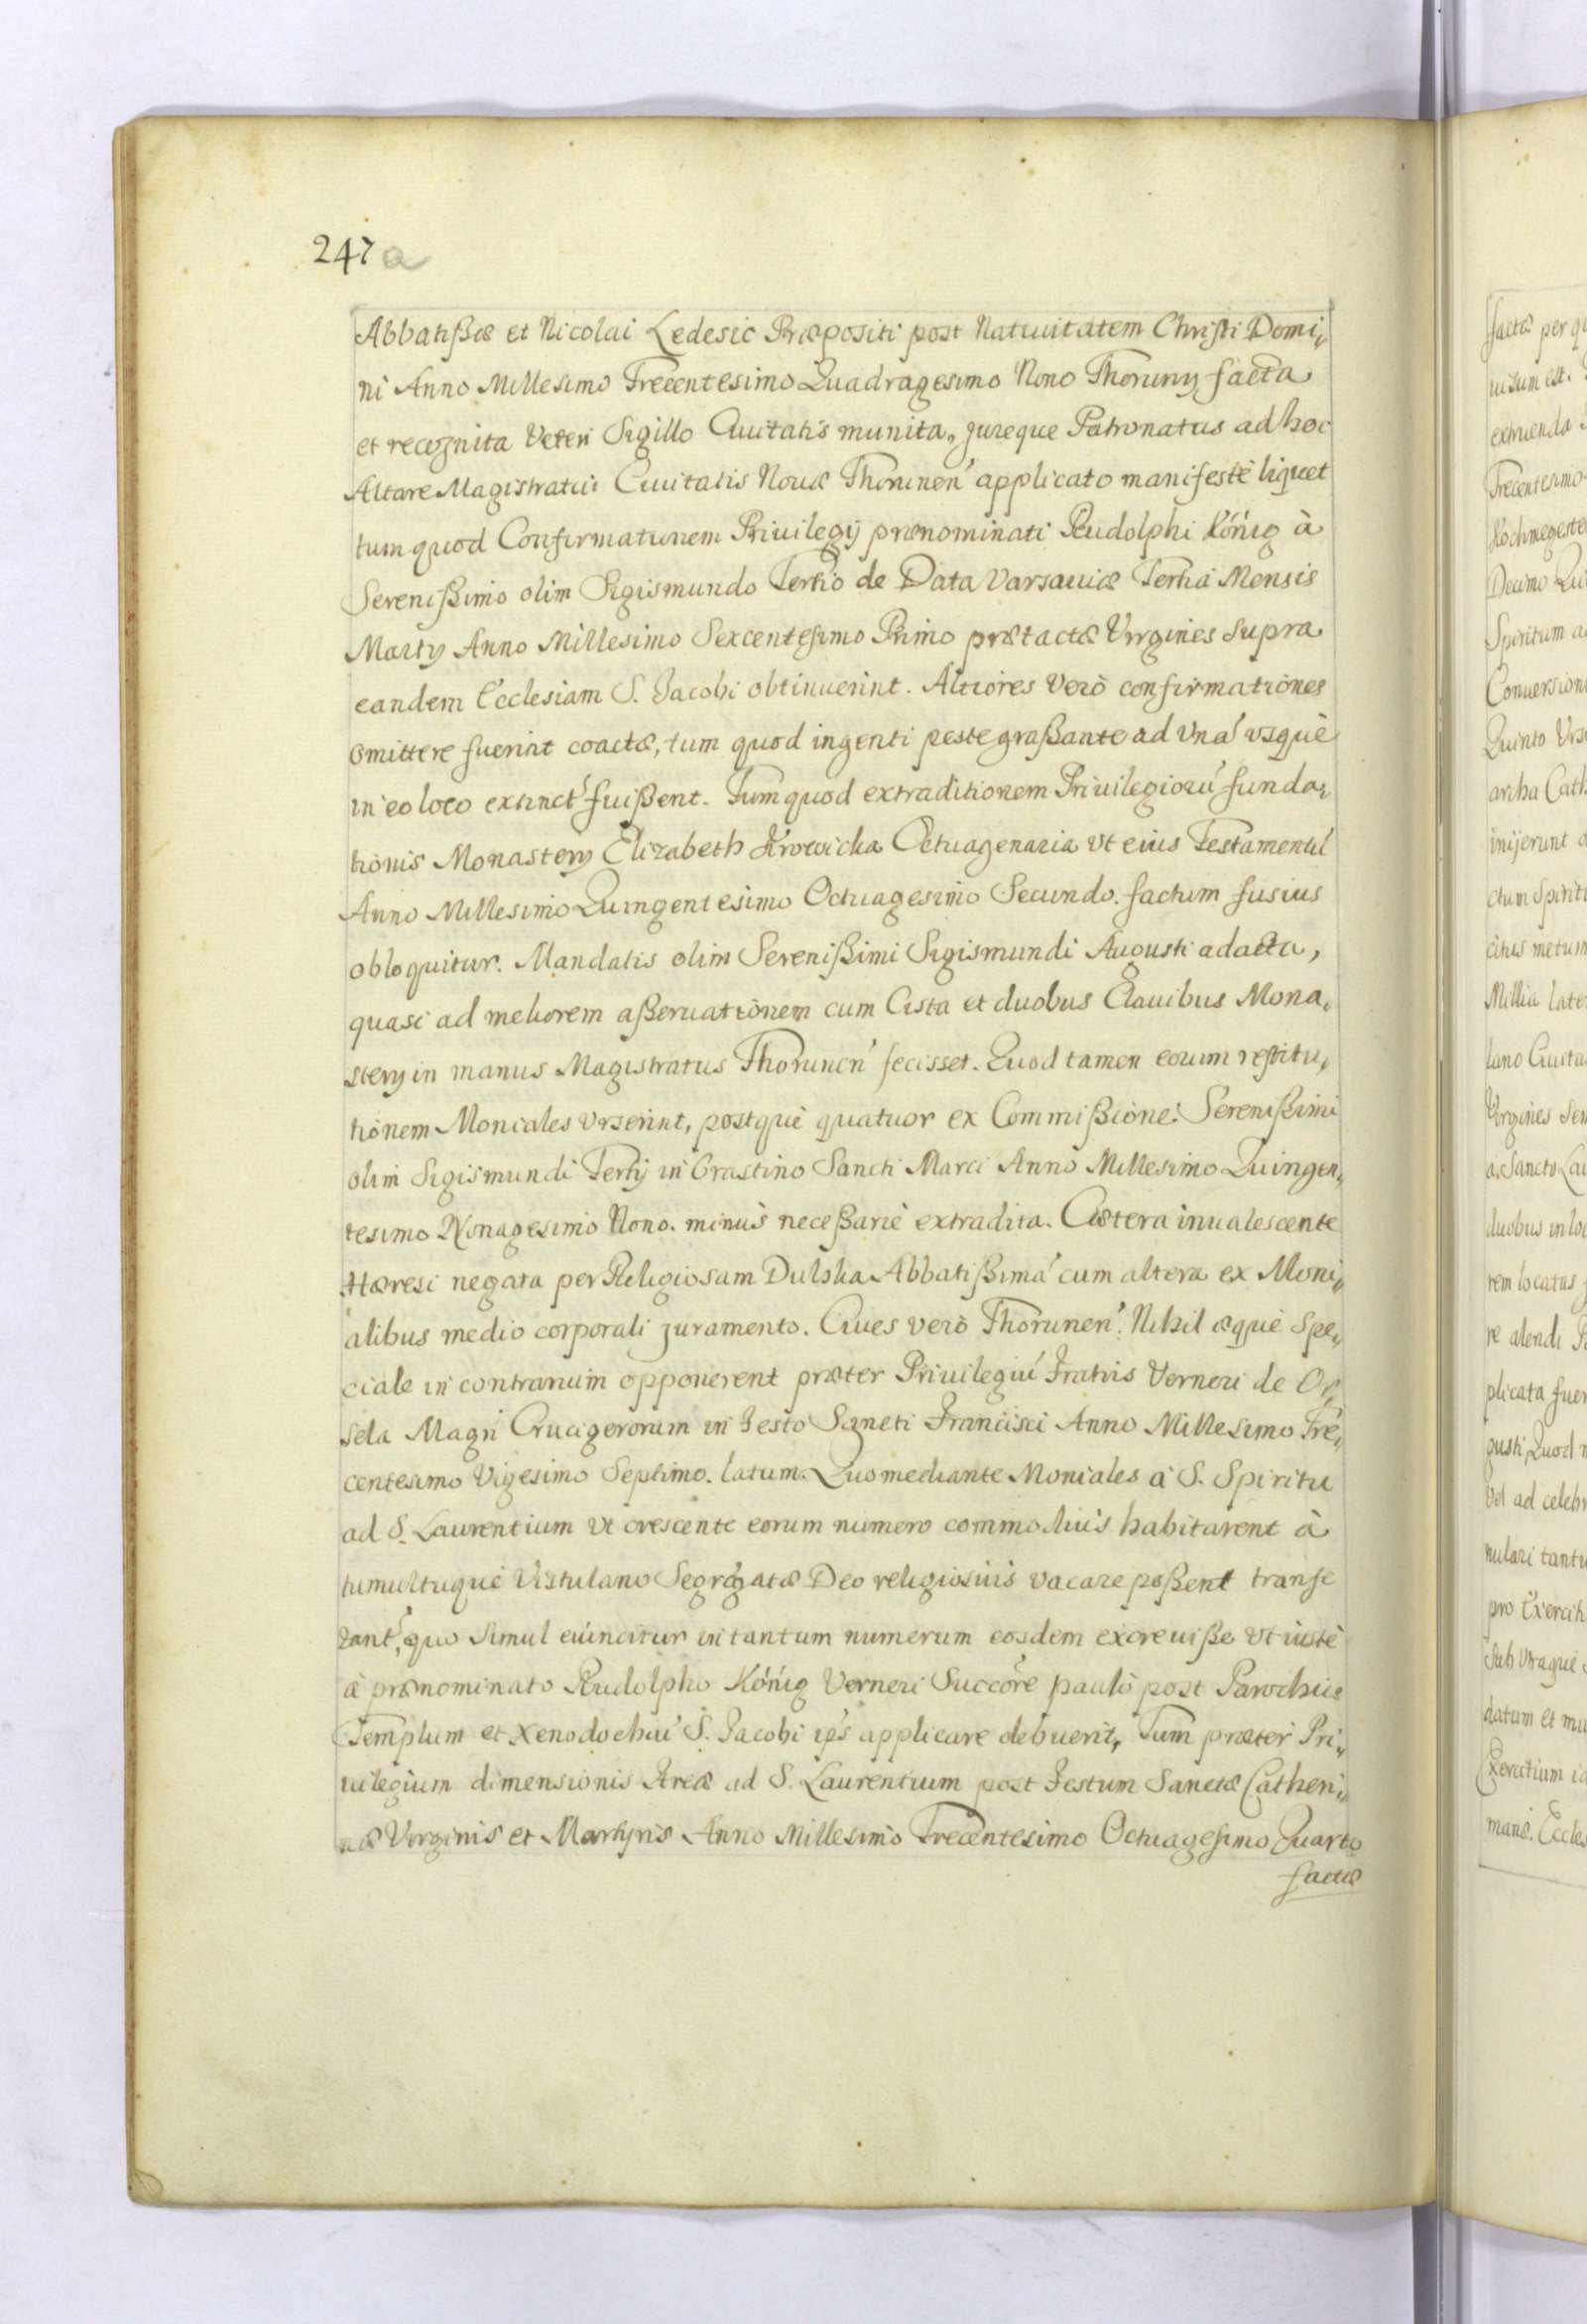 247 a
Abbatißæ et Nicolai Ledesic Præpositi post Natiuitatem Christi Domi„
ni Anno Millesimo Trecentesimo Quadragesimo Nono Thoruny facta
et recognita Veteri Sigillo Ciuitatis munita, jureque Patronatus ad hoc
Altare Magistratui Ciuitatis Nouæ Thorunen' applicato manifestè liquet
tum quod Confirmationem Priuilegij prænominati Rudolphi König à
Serenißimo olim Sigismundo Tertio de Data Varsauiæ Tertia Mensis
Marty Anno Millesimo Sexcentesimo Primo prætactæ Virgines supra
eandem Ecclesiam S. Jacobi obtinuerint. Altiores verò confirmationes
omittere fuerint coactæ, tum quod ingenti peste graßante ad vná vsquè
in eo loco extinct' fuißent. Tum quod extraditionem Priuilegiorú funda„
tionis Monastery Elizabeth Krowicka Octuagenaria vt eius Testamentú
Anno Millesimo Quingentesimo Octuagesimo Secundo. factum fusius
obloquitur. Mandatis olim Serenißimi Sigismundi Augusti adacta,
quasi ad meliorem aßeruationem cum Cista et duobus Clauibus Mona„
stery in manus Magistratus Thorunen' fecisset. Quod tamen eorum restitu„
tionem Moniales vrserint, postquè quatuor ex Commißione Serenißimi
olim Sigismundi Tertij in Crastino Sancti Marci Anno Millesimo Quingen„
tesimo Nonagesimo Nono. minùs neceßariè extradita. Cætera inualescente
Hæresi negata per Religiosam Dulska Abbatißimá cum altera ex Moni„
alibus medio corporali juramento. Ciues verò Thorunen'. Nihil æquè Spe„
ciale in contrarium opponerent præter Priuilegiú Fratris Verneri de Or„
sela Magri Crucigerorum in Festo Sancti Francisci Anno Millesimo Tre„
centesimo Vigesimo Septimo. latum. Quo mediante Moniales à S. Spiritu
ad S. Laurentium vt crescente eorum numero commodius habitarent à
tumultuquè Vistulano Segregatæ Deo religiosius vacare poßent transfe
rant', quo simul euincitur in tantum numerum eosdem excreuiße vt iustè
à prænominato Rudolpho König Verneri Succore paulò post Parochiæ
Templum et Xenodochiú S. Jacobi ips applicare debuerit, Tum præter Pri„
uilegium dimensionis Areæ ad S. Laurentium post Festum Sanctæ Catheri„
næ Virginis et Martyris Anno Millesimo Trecentesimo Octuagesimo Quarto
factæ